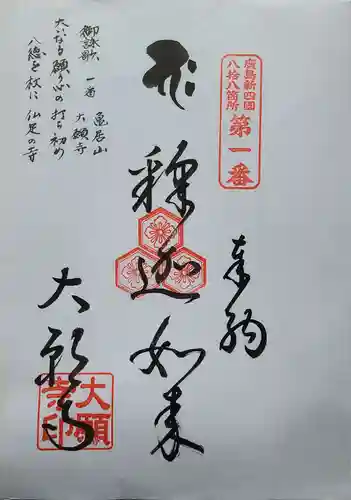 廣島新四國
八拾八箇所
第一番
奉納
釋迦如来
大願寺
大願
寺印
御詠歌 一番 亀居山
大願寺
大いなる願う心の打ち初め
八徳を杖に仙足の寺